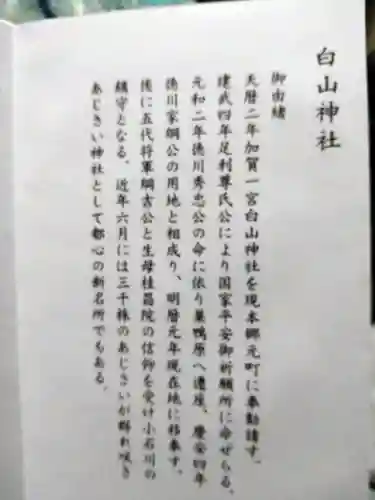 白山神社
御由緒
天暦二年加賀一宮白山神社を現本郷元町に奉勧請す。
建武四年足利尊氏公により国家平安御祈願所に命ぜらる。
元和二年徳川秀忠公の命に依り巣鴨原へ遷座、慶安四年
徳川家綱公の用地と相成り、明暦元年現在地に移奉す。
後に五代将軍綱吉公と生母桂昌院の信仰を受け小石川の
鎮守となる。近年六月には三千株のあじさいが群れ咲き
あじさい神社として都心の新名所でもある。